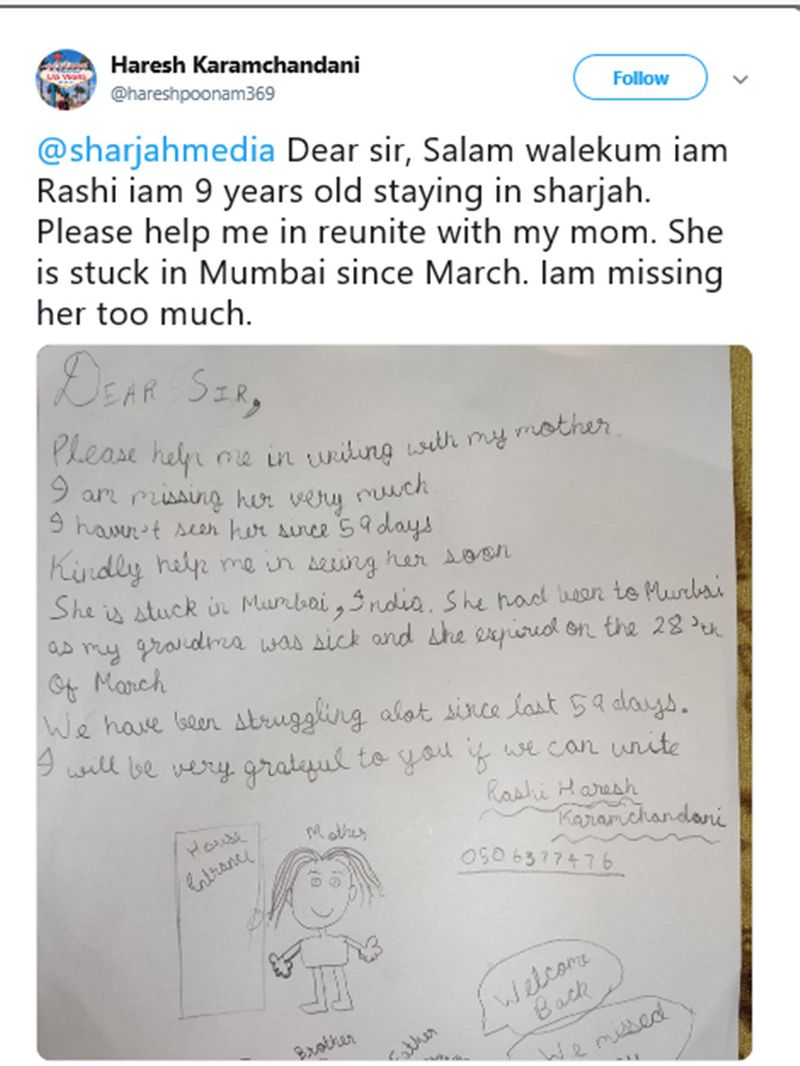 LAS VEGAS
Haresh Karamchandani
@hareshpoonam369
Follow
@sharjahmedia Dear sir, Salam walekum iam
Rashi iam 9 years old staying in sharjah.
Please help me in reunite with my mom. She
is stuck in Mumbai since March. Iam missing
her too much.
DEAR SIR,
Please help me in uniting with my mother.
I am missing her very much
I haven't seen her since 59 days
Kindly help me in seeing her soon
She is stuck in Mumbai, India. She had been to Mumbai
as my grandma was sick and she expired on the 28th
Of March
We have been struggling alot since last 59 days.
I will be very grateful to you if we can unite
Rashi Haresh
Karamchandani
0506377476
House
Entrance
Mother
Welcome
Back
Brother
Father
We missed